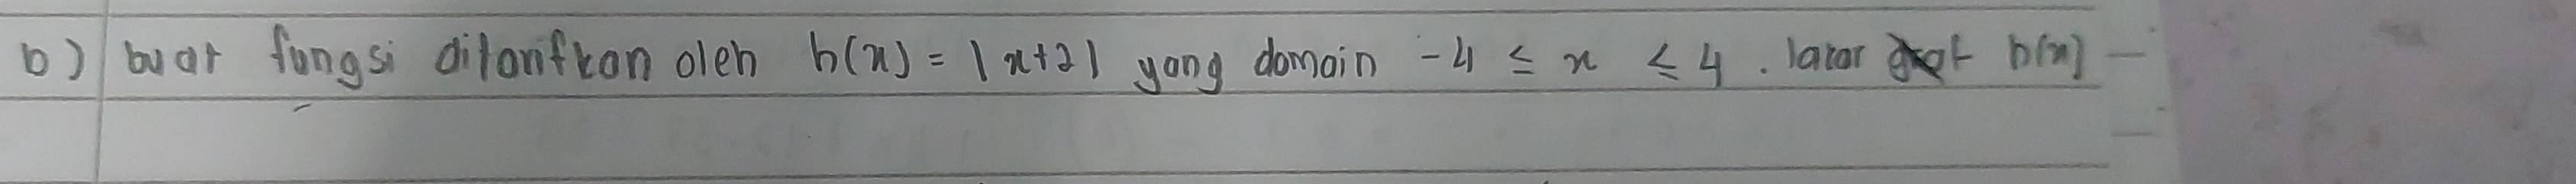 b) buat fungsi ditarifkan oleh h(x) = |x+2| yang domain -4 ≤ x ≤ 4 . lakar h(x)